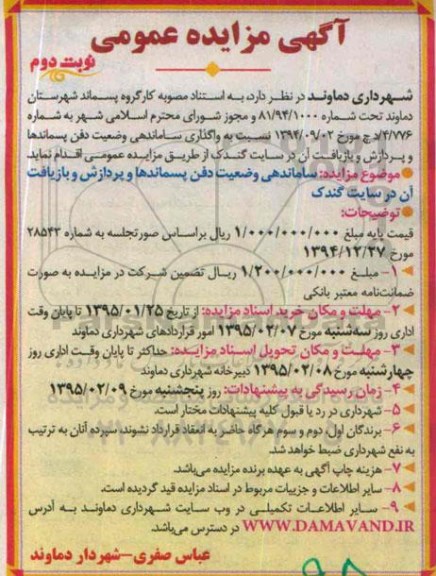 آگهی مزایده عمومی
نوبت دوم
شهرداری دماوند در نظر دارد، به استناد مصوبه کارگروه پسماند شهرستان
دماوند تحت شماره ۸۱/۹۴/۱۰۰۰ و مجوز شورای محترم اسلامی شهر به شماره
۴/۷۷۶/د ج مورخ ۱۳۹۴/۰۹/۰۲ نسبت به واگذاری ساماندهی وضعیت دفن پسماندها
و پردازش و بازیافت آن در سایت گندک از طریق مزایده عمومی اقدام نماید.
موضوع مزایده: ساماندهی وضعیت دفن پسماندها و پردازش و بازیافت
آن در سایت گندک
توضیحات:
قیمت پایه مبلغ ۱/۰۰۰/۰۰۰/۰۰۰ ریال براساس صورتجلسه به شماره ۲۸۵۴۳
مورخ ۱۳۹۴/۱۲/۲۷
۱- مبلغ ۱/۲۰۰/۰۰۰/۰۰۰ ریال تضمین شرکت در مزایده به صورت
ضمانت‌نامه معتبر بانکی
۲- مهلت و مکان خرید اسناد مزایده: از تاریخ ۱۳۹۵/۰۱/۲۵ تا پایان وقت
اداری روز سه‌شنبه مورخ ۱۳۹۵/۰۲/۰۷ امور قراردادهای شهرداری دماوند
۳- مهلت و مکان تحویل اسناد مزایده: حداکثر تا پایان وقت اداری روز
چهارشنبه مورخ ۱۳۹۵/۰۲/۰۸ دبیرخانه شهرداری دماوند
۴- زمان رسیدگی به پیشنهادات: روز پنجشنبه مورخ ۱۳۹۵/۰۲/۰۹
۵- شهرداری در رد یا قبول کلیه پیشنهادات مختار است.
۶- برندگان اول، دوم و سوم هرگاه حاضر به انعقاد قرارداد نشوند، سپرده آنان به ترتیب
به نفع شهرداری ضبط خواهد شد.
۷- هزینه چاپ آگهی به عهده برنده مزایده می‌باشد.
۸- سایر اطلاعات و جزییات مربوط در اسناد مزایده قید گردیده است.
۹- سایر اطلاعات تکمیلی در وب سایت شهرداری دماوند به آدرس
WWW.DAMAVAND.IR در دسترس می‌باشد.
عباس صفری-شهردار دماوند